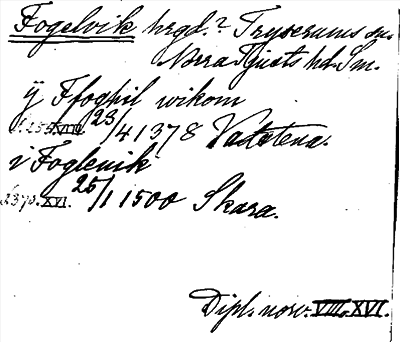 Fogelvik hrgd.? Tryserums sn.
Norra Tjusts hd. Sm.
ÿ Ffoghil wikom
XVIII. 23/4 1378 Vadstena.
i Foglevik
XVI. 25/1 1500 Skara.
Dipl. norv. VIII, XVI.